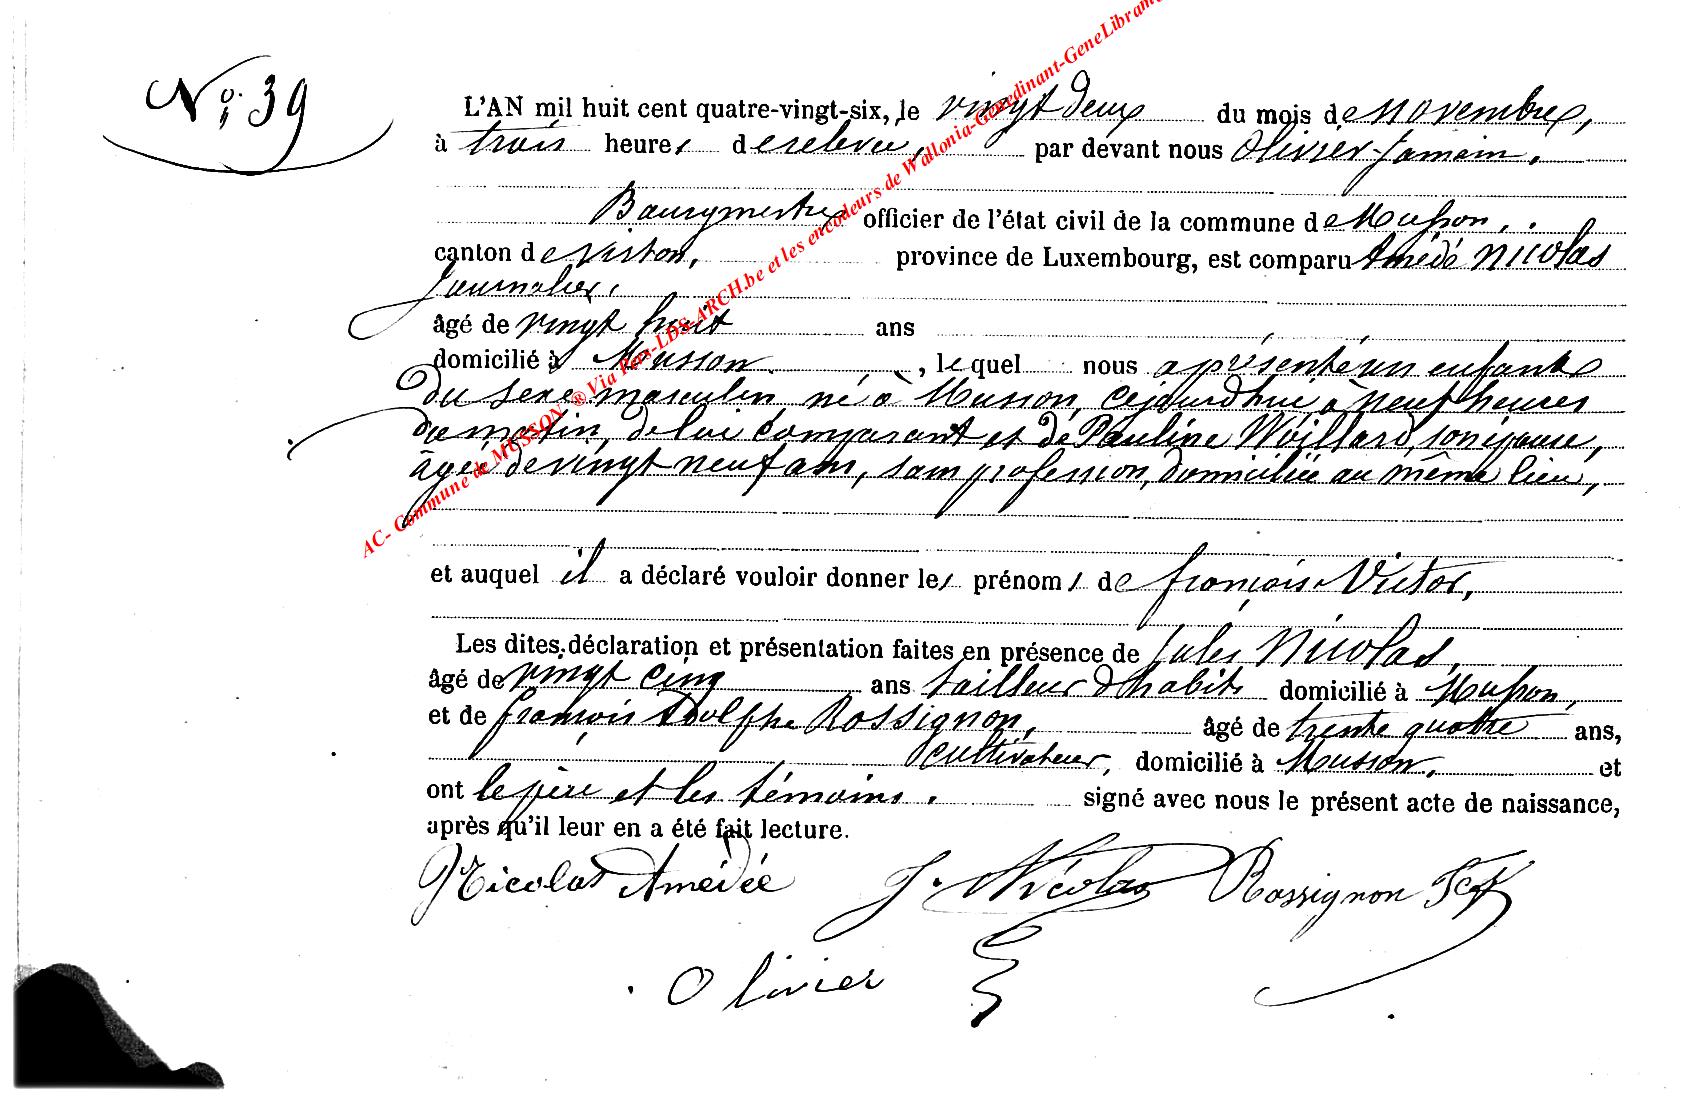 N° 39
L'AN mil huit cent quatre-vingt-six, le vingt deux du mois de Novembre,
à trois heures de relevée, par devant nous Olivier Jamein,
Bourgmestre officier de l'état civil de la commune de Musson,
canton de Virton, province de Luxembourg, est comparu Amédé Nicolas
Journalier,
âgé de vingt huit ans
domicilié à Musson , lequel nous a présenté un enfant
du sexe masculin, né à Musson, cejourd'hui, à neuf heures
du matin, de lui comparant et de Pauline Woillard, son épouse,
âgée de vingt neuf ans, sans profession, domiciliée au même lieu,
et auquel il a déclaré vouloir donner les prénoms de françois Victor,
Les dites déclaration et présentation faites en présence de Jules Nicolas,
âgé de vingt cinq ans tailleur d'habits domicilié à Musson,
et de françois Adolphe Rossignon, âgé de trente quatre ans,
cultivateur, domicilié à Musson, et
ont le père et les témoins. signé avec nous le présent acte de naissance,
après qu'il leur en a été fait lecture.
Nicolas Amédée J. Nicolas Rossignon
Olivier
AC- Commune de MUSSON ® Via Pers-LDS-ARCH.be et les encodeurs de Wallonia-Genedinant-GeneLibrami